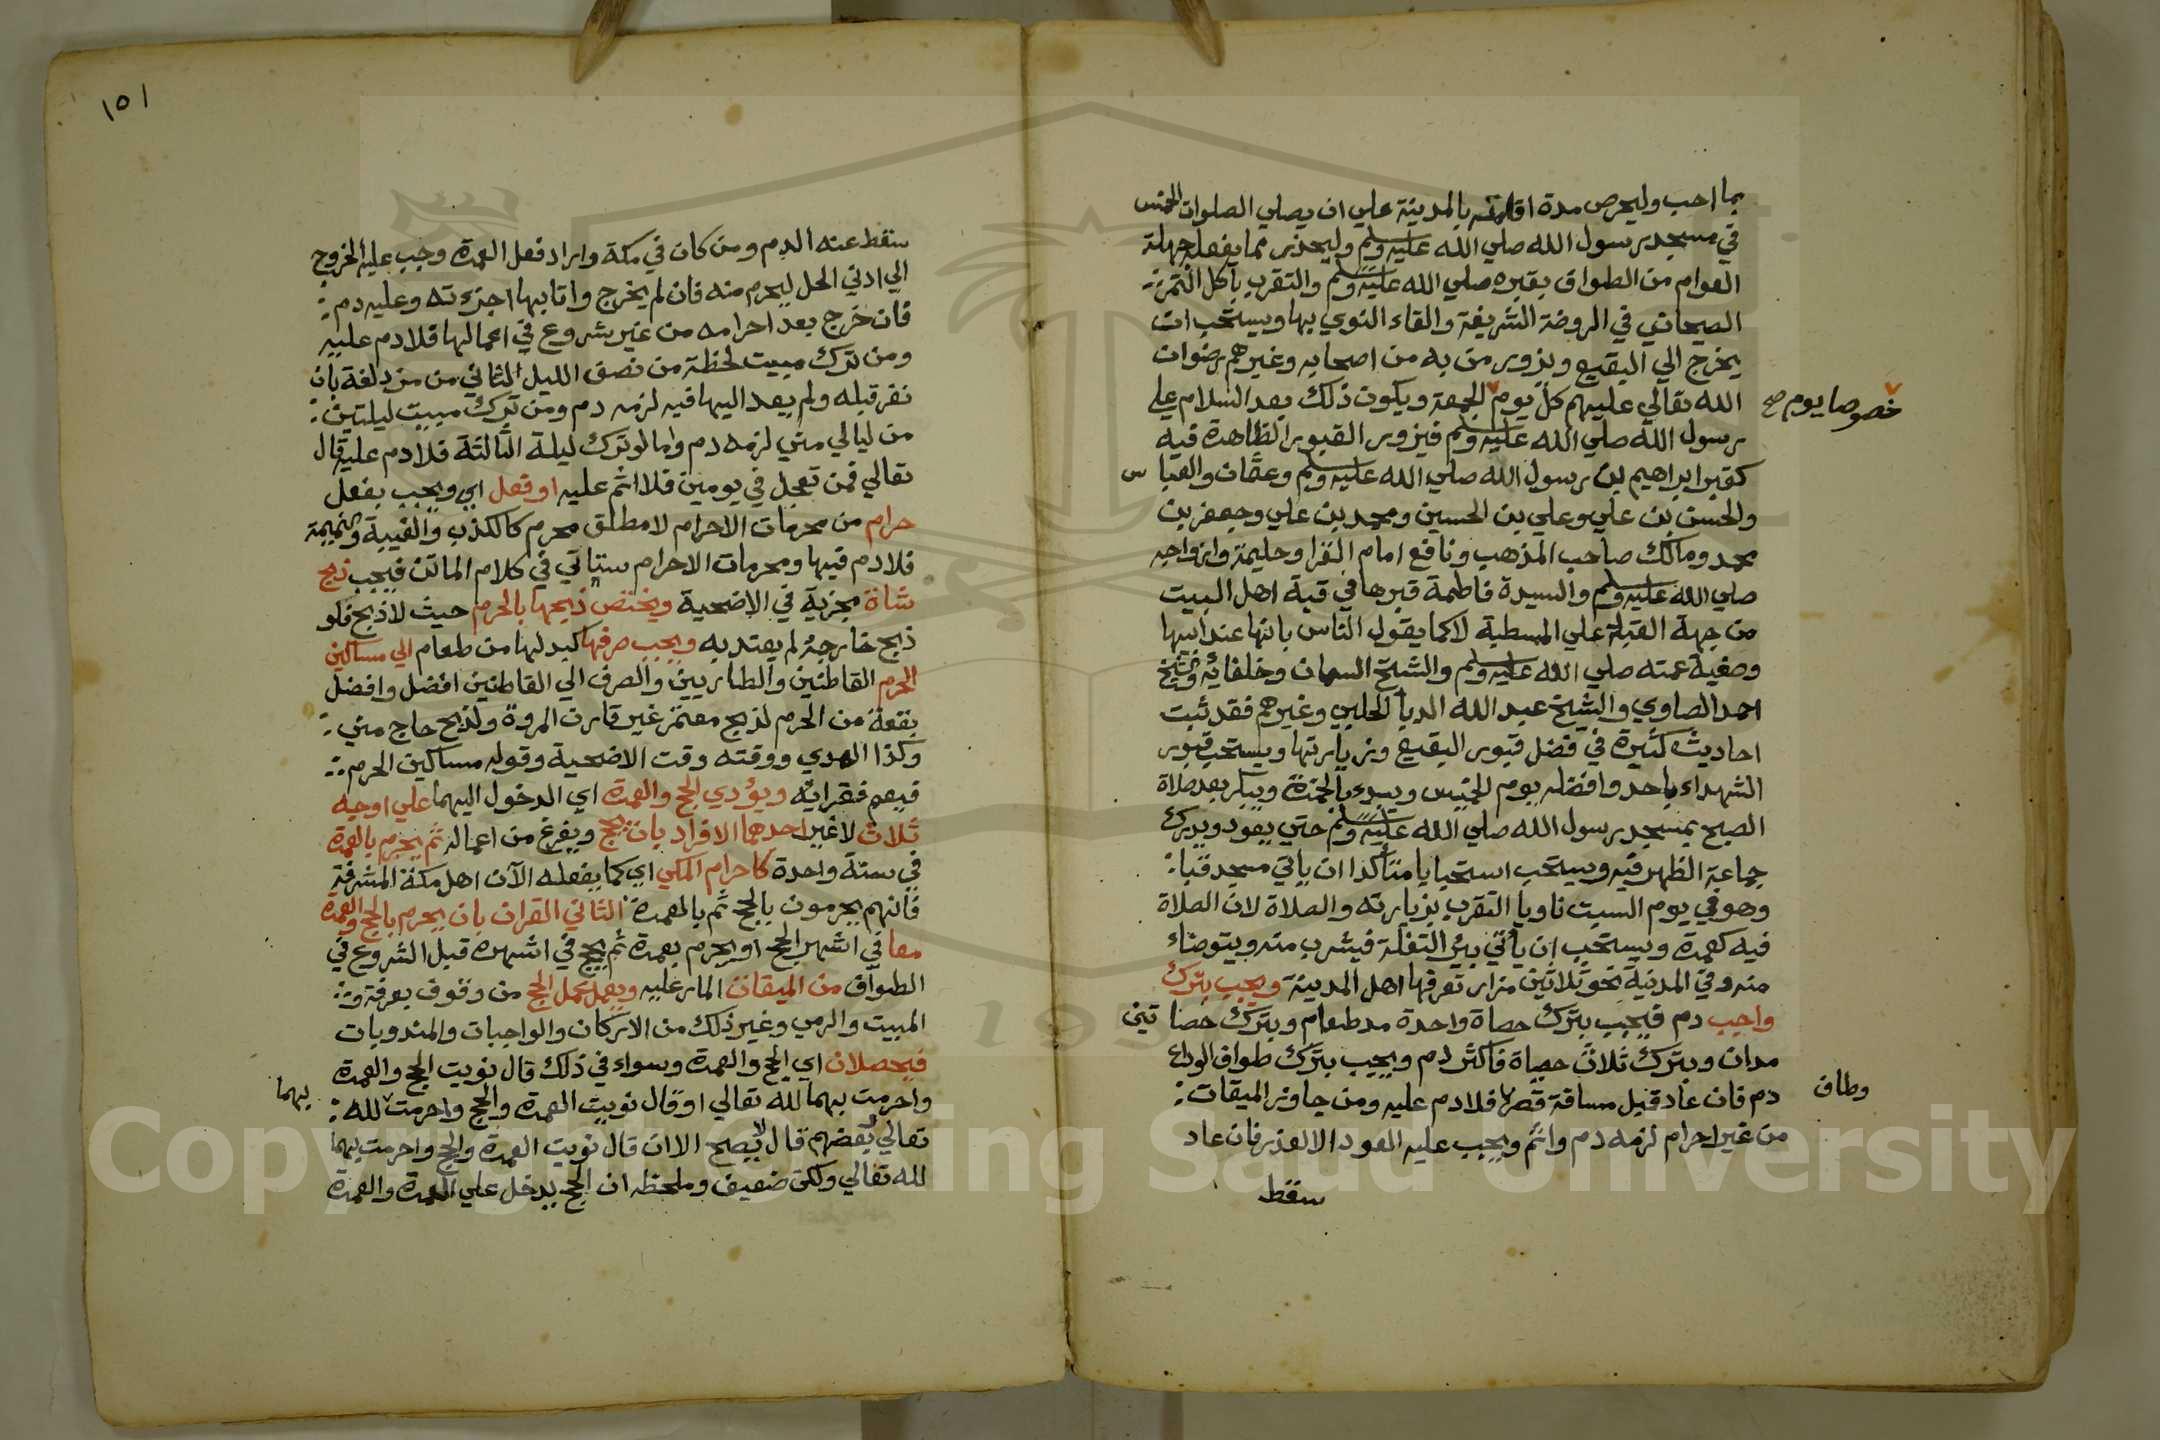 بما احب وليحرص مدة اقامته بالمدينة علي ان يصلي الصلوات الخمس
في مسجد رسول الله صلي الله عليه وسلم وليحذر مما يفعله جهلة
العوام من الطواف بقبره صلي الله عليه وسلم والتقرب باكل التمر
الصيحاني في الروضة الشريفة والقاء النوي بها ويستحب ان
يخرج الي البقيع ويزور من به من اصحابه وغيرهم رضوان
الله تعالي عليهم كل يوم الجمعة ويكون ذلك بعد السلام علي
خصوصا يوم صح
رسول الله صلي الله عليه وسلم فيزور القبور الظاهرة فيه
كقبر ابراهيم بن رسول الله صلي الله عليه وسلم وعثمان والعباس
والحسن بن علي وعلي بن الحسين ومحمد بن علي وجعفر بن
محمد ومالك صاحب المذهب ونافع امام القرا وحليمة وازواجه
صلي الله عليه وسلم والسيدة فاطمة قبرها في قبة اهل البيت
من جهة القبلة علي المسطبة لا كما يقول الناس بانها عند ابيها
وصفية عمته صلي الله عليه وسلم والشيخ السمان وخلفائه والشيخ
احمد الصاوي والشيخ عبد الله الدبا الحلبي وغيرهم فقد ثبت
احاديث كثيرة في فضل قبور البقيع وزيارتها ويستحب قبور
الشهداء باحد وافضله يوم الخميس ويبدء بالحمزة ويبكر بعد صلاة
الصبح بمسجد رسول الله صلي الله عليه وسلم حتي يعود ويدرك
جماعة الظهر فيه ويستحب استحبابا متأكدا ان ياتي مسجد قبا
وهو في يوم السبت ناويا التقرب بزيارته والصلاة لان الصلاة
فيه كعمرة ويستحب ان يأتي بئر التفلة فيشرب منه ويتوضاء
منه وفي المدينة نحو ثلاثين مزار تعرفها اهل المدينة ويجب بترك
واجب دم فيجب بترك حصاة واحدة مد طعام وبترك حصاتين
مدان وبترك ثلاث حصاة فاكثر دم ويجب بترك طواف الوداع
دم فان عاد قبل مسافة قصر فلا دم عليه ومن جاوز الميقات
وطاف
من غير احرام لزمه دم واثم ويجب عليه العود الا لعذر فان عاد
سقط
١٥١
سقط عنه الدم ومن كان في مكة واراد فعل العمرة وجب عليه الخروج
الي ادني الحل ليحرم منه فان لم يخرج واتا بها اجزءته وعليه دم
فان خرج بعد احرامه من غير شروع في اعمالها فلا دم عليه
ومن ترك مبيت لحظة من نصف الليل الثاني من مزدلفة بان
نفر قبله ولم يعد اليها فيه لزمه دم ومن ترك مبيت ليلتين
من ليالي مني لزمه دم واما لو ترك ليلة الثالثة فلا دم عليه قال
تعالي فمن تعجل في يومين فلا اثم عليه او فعل اي ويجب بفعل
حرام من محرمات الاحرام لا مطلق محرم كالكذب والغيبة والنميمة
فلا دم فيها ومحرمات الاحرام ستأتي في كلام الماتن فيجب ذبح
شاة مجزية في الاضحية ويختص ذبحها بالحرم حيث لا ذبح فلو
ذبح خارجه لم يعتد به ويجب صرفها كبدلها من طعام الي مساكين
الحرم القاطنين والطاريين والصرف الي القاطنين افضل وافضل
بقعة من الحرم لذبح معتمر غير قارن المروة ولذبح حاج مني
وكذا الهدي ووقته وقت الاضحية وقوله مساكين الحرم
فيعم فقرائه ويؤدي الحج والعمرة اي الدخول اليهما علي اوجه
ثلاث لا غير احدهما الافراد بان يحج ويفرغ من اعماله ثم يحرم بالعمرة
في سنة واحدة كاحرام المكي اي كما يفعله الآن اهل مكة المشرفة
فانهم يحرمون بالحج ثم بالعمرة الثاني القران بان يحرم بالحج والعمرة
معا في اشهر الحج او يحرم بعمرة ثم يحج في اشهره قبل الشروع في
الطواف من الميقات المار عليه ويعمل عمل الحج من وقوف بعرفة و
المبيت والرمي وغير ذلك من الاركان والواجبات والمندوبات
فيحصلان اي الحج والعمرة وسواء في ذلك قال نويت الحج والعمرة
واحرمت بهما لله تعالي او قال نويت العمرة والحج واحرمت لله
بهما
تعالي بعضهم قال لا يصح الا ان قال نويت العمرة والحج واحرمت بهما
لله تعالي ولكن ضعيف وملحظه ان الحج يدخل علي العمرة والعمرة
Copyright © King Saud University